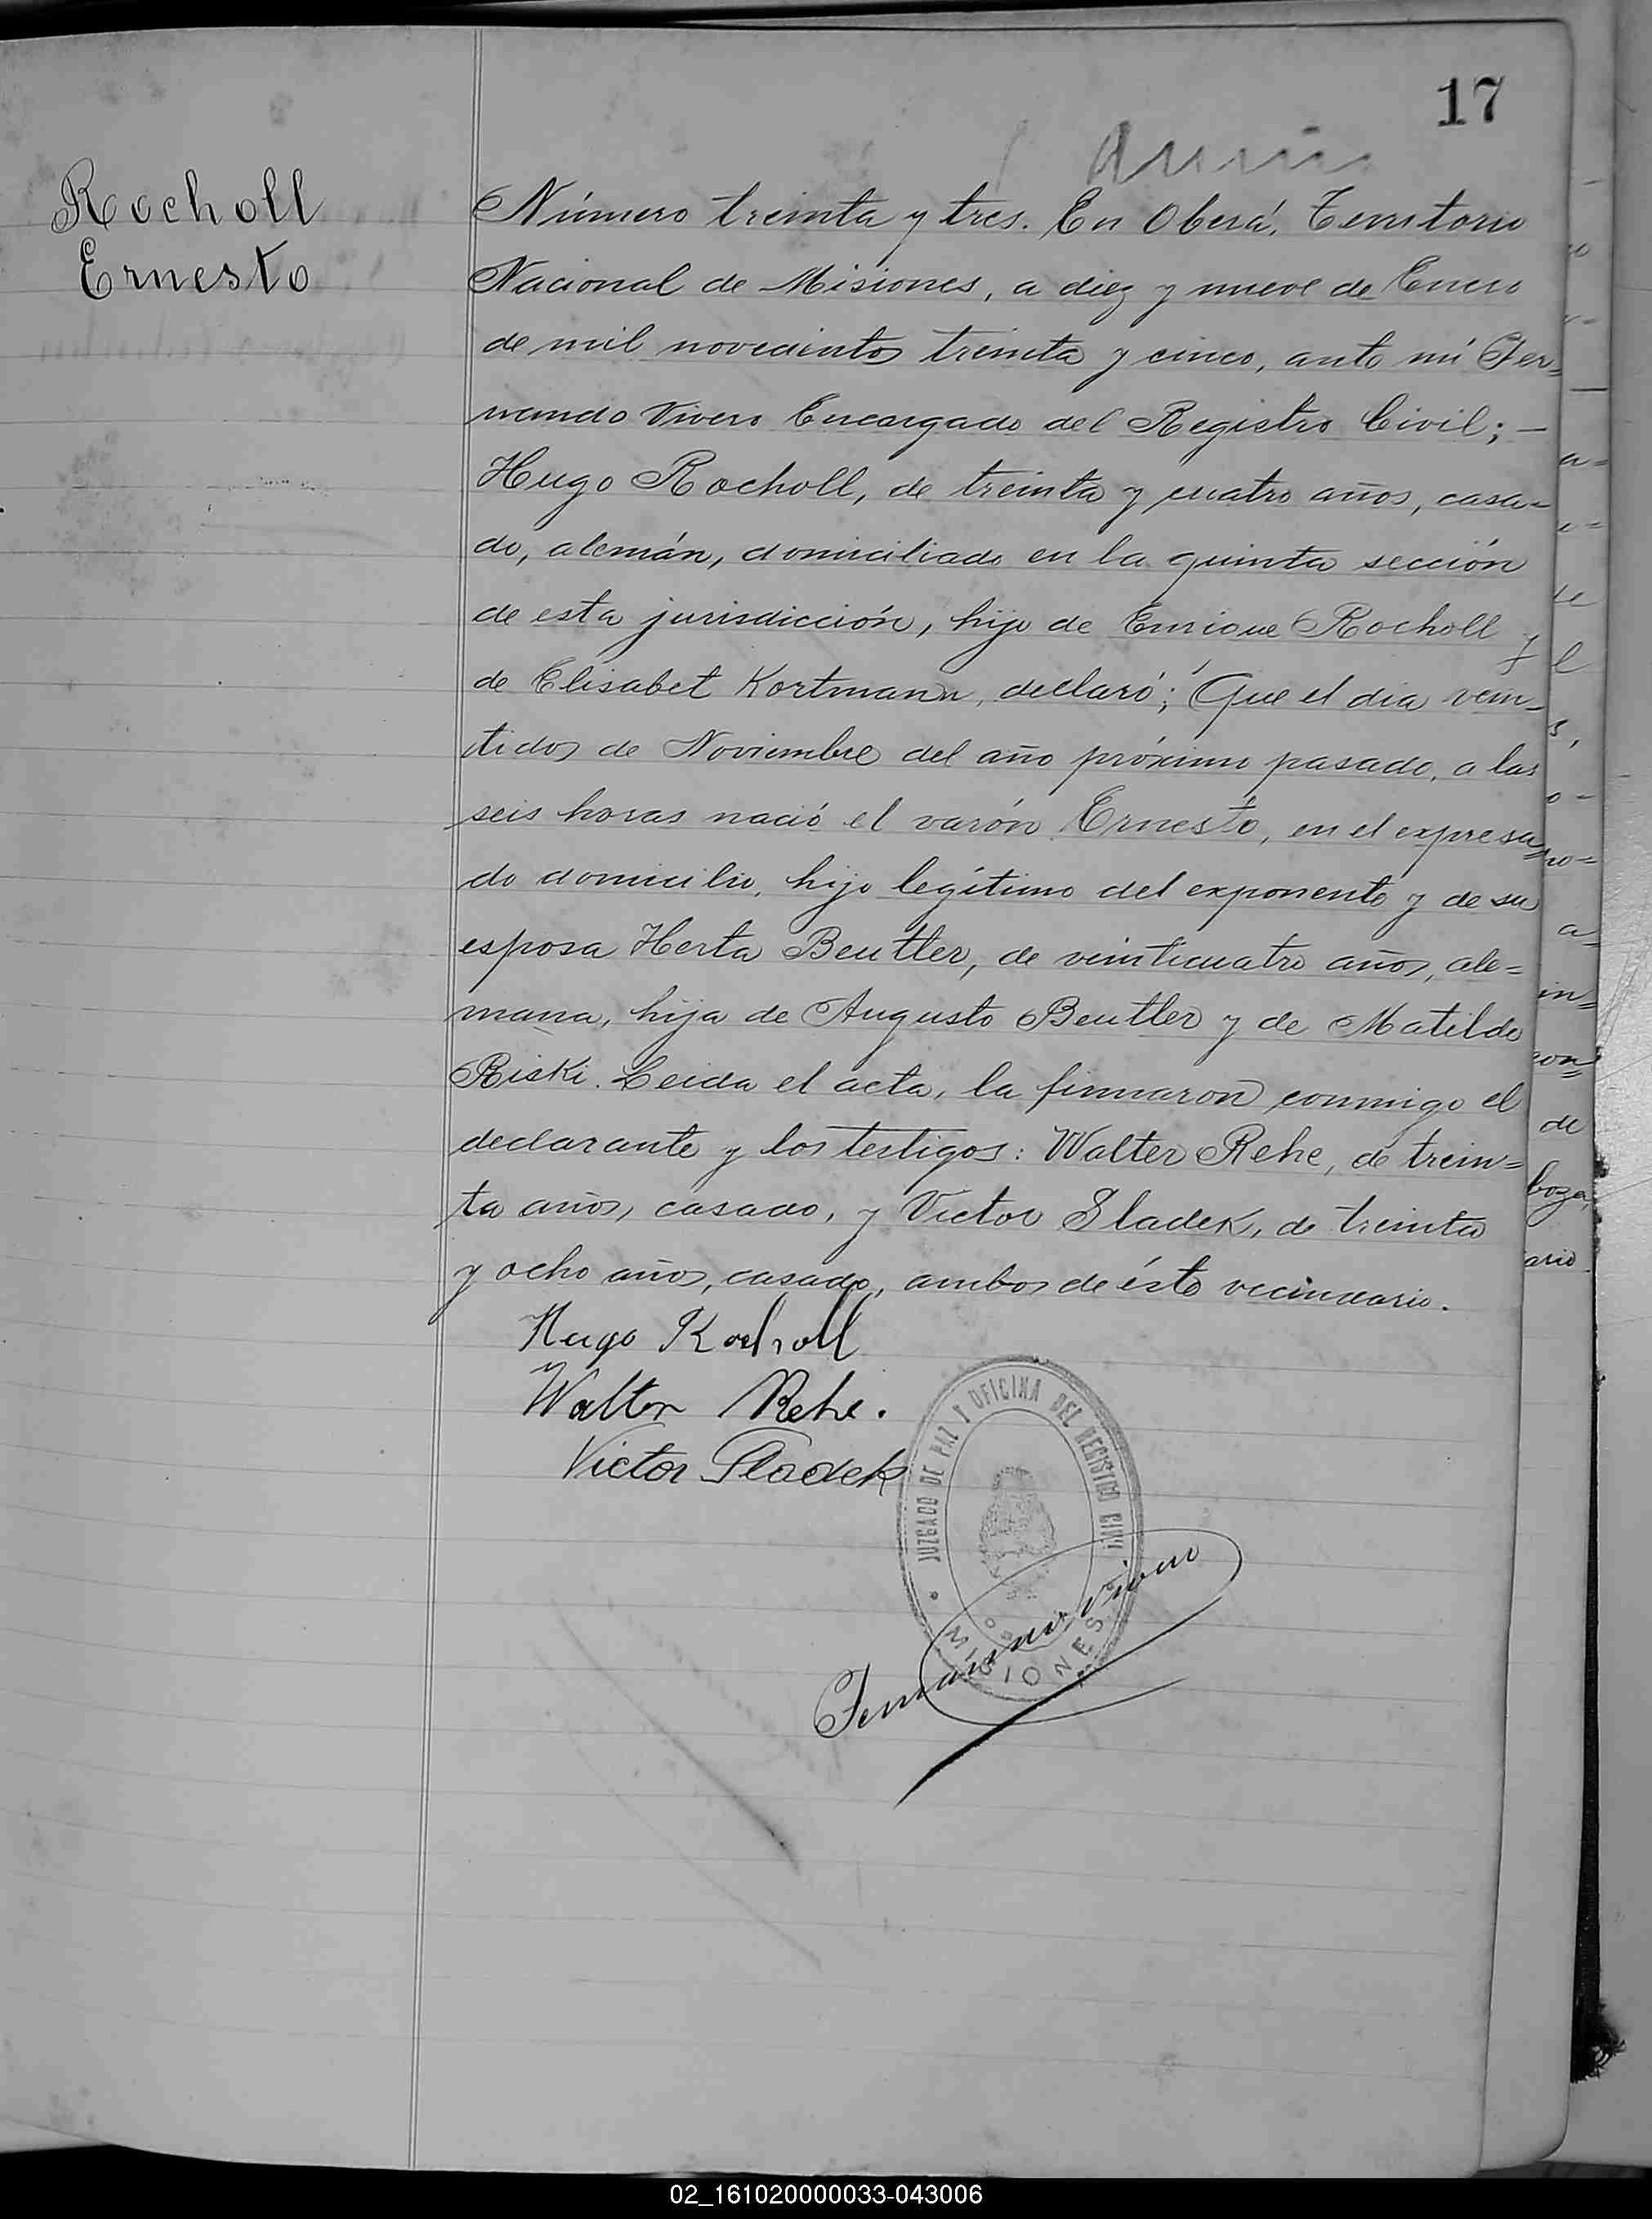 17
Rocholl
Ernesto
Número treinta y tres. En Oberá, Territorio
Nacional de Misiones, a diez y nueve de Enero
de mil novecientos treinta y cinco, ante mí Fer=
nando Vivero Encargado del Registro Civil; —
Hugo Rocholl, de treinta y cuatro años, casa=
do, alemán, domiciliado en la quinta sección
de esta jurisdicción, hijo de Enrique Rocholl y
de Elisabet Kortmann, declaró; Que el día vein=
tidos de Noviembre del año próximo pasado, a las
seis horas nació el varón Ernesto, en el expresa=
do domicilio, hijo legítimo del exponente y de su
esposa Herta Beutler, de veinticuatro años, ale=
mana, hija de Augusto Beutler y de Matilde
Riski. Leida el acta, la firmaron conmigo el
declarante y los testigos: Walter Rehe, de trein=
ta años, casado, y Victor Sladek, de treinta
y ocho años, casado, ambos de éste vecindario.
Hugo Rocholl
Walter Rehe.
Victor Sladek
JUZGADO DE PAZ Y OFICINA DEL REGISTRO CIVIL
MISIONES
Fernando Vivero
02_161020000033-043006